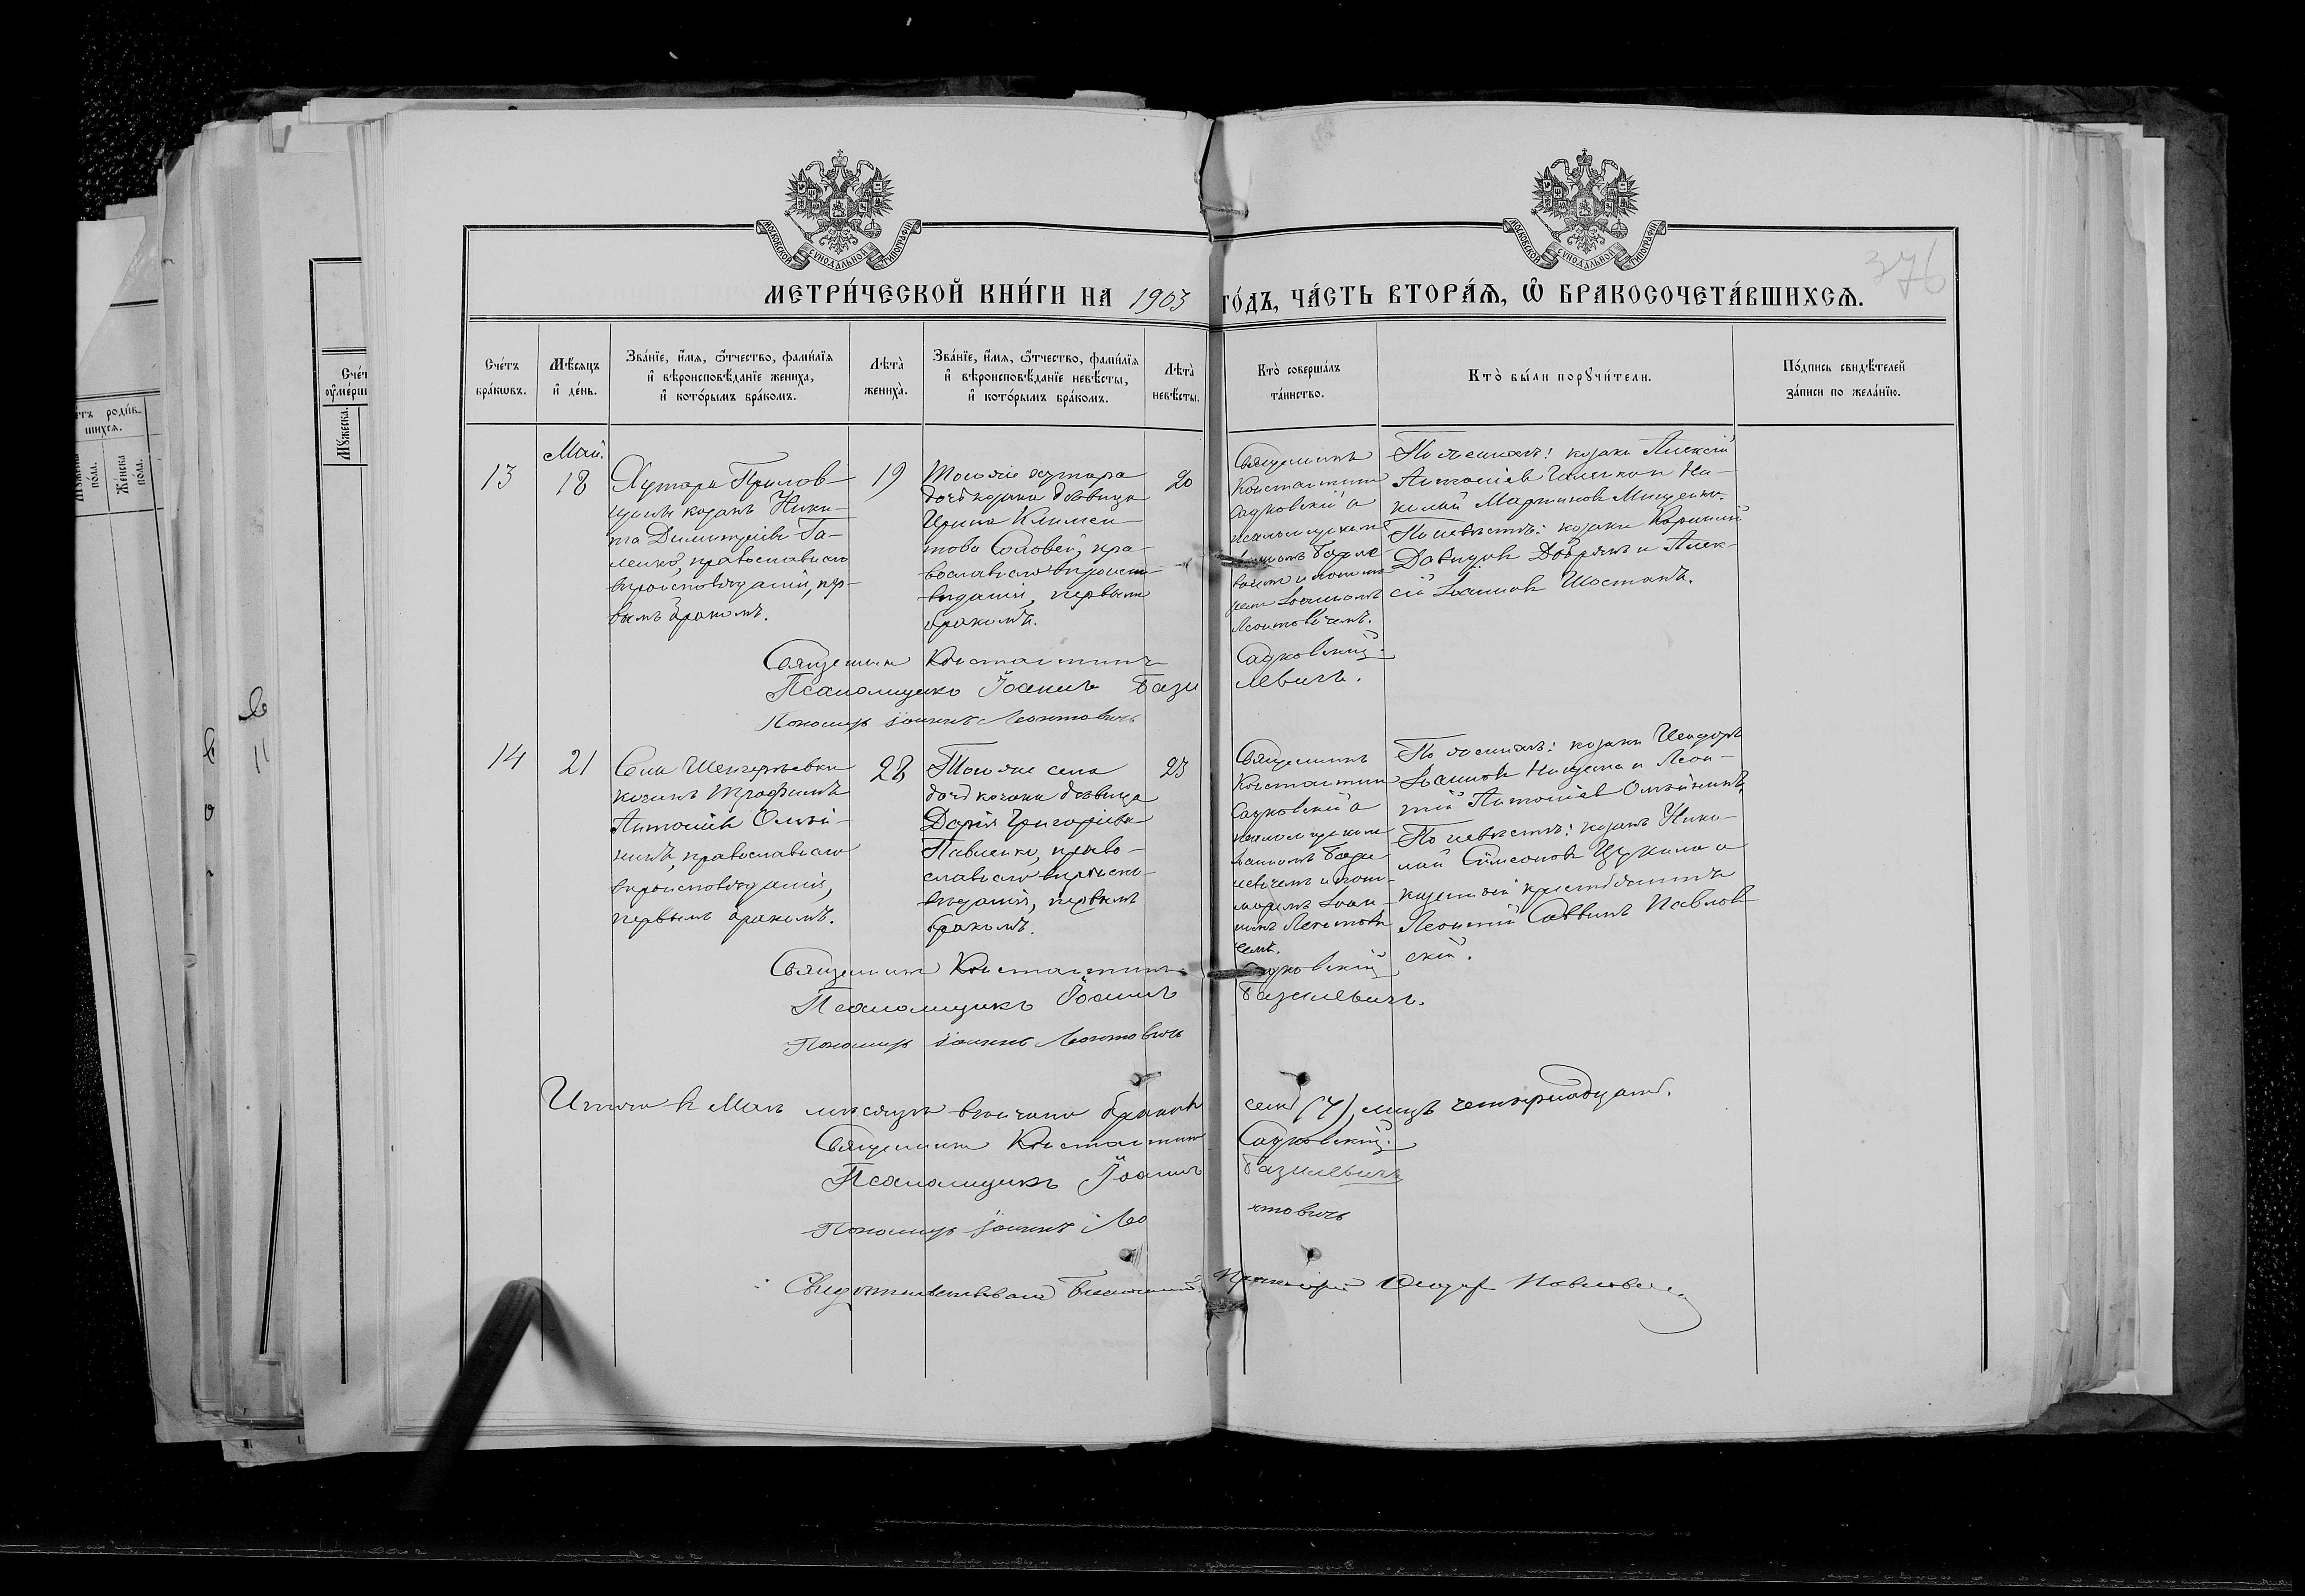 МОСКОВСКОЙ СѴНОДАЛЬНОЙ ТИПОГРАФІИ
МОСКОВСКОЙ СѴНОДАЛЬНОЙ ТИПОГРАФІИ
376
МЕТРИ́ЧЕСКОЙ КНИ́ГИ НА 1903 ГО́ДЪ, ЧА́СТЬ ВТОРА́Ѧ, Ѽ БРАКОСОЧЕТА́ВШИХСѦ.
Сче́тъ бра́кѡвъ.
Мѣ́сяцъ и҆ де́нь.
Зва́нїе, и҆́мя, ѻ҆́тчество, фами́лїя
и҆ вѣроисповѣ́данїе жениха̀,
и҆ кото́рымъ бра́комъ.
Лѣта̀ жениха̀.
Зва́нїе, и҆́мя, ѻ҆́тчество, фами́лїя
и҆ вѣроисповѣ́данїе невѣ́сты,
и҆ кото́рымъ бра́комъ.
Лѣта̀ невѣ́сты.
Кто̀ соверша́лъ та́инство.
Кто̀ бы́ли порꙋчи́тели.
По́дпись свидѣ́телей
за́писи по жела́нїю.
13
Май.
18
Хутора Прилов-
щины козакъ Ники-
та Димитріевъ Га-
ленко, православнаго
вѣроисповѣданія, пер-
вымъ бракомъ.
19
Того же хутора
дочь козака дѣвица
Ирина Климен-
това Соловей, пра-
вославнаго вѣроиспо-
вѣданія, первымъ
бракомъ.
20
Священникъ
Константинъ
Садковскій съ
псаломщикомъ
Іоанномъ Базиле
вичемъ и понома
ремъ Іоанномъ
Леонтовичемъ.
По женихѣ: козаки Алексій
Антоніевъ и Ни-
колай Мартиновъ Мищенко.
По невѣстѣ: козаки Корнилій
Давидовъ и Алек-
сій Іоанновъ Шостакъ.
Священникъ Константинъ Садковскій.
Псаломщикъ Іоаннъ Базилевичъ.
Пономарь Іоаннъ Леонтовичъ
14
21
Села Шенгеріевки
козакъ Трофимъ
Антоніевъ Олій-
никъ, православнаго
вѣроисповѣданія,
первымъ бракомъ.
28
Того же села
дочь козака дѣвица
Дарія Григоріева
Павленко, право-
славнаго вѣроиспо-
вѣданія, первымъ
бракомъ.
23
Священникъ
Константинъ
Садковскій съ
псаломщикомъ
Іоанномъ Бази
левичемъ и поно-
маремъ Іоан-
номъ Леонтови
чемъ.
По женихѣ: козаки Исидоръ
Іоанновъ и Леон-
тій Антоніевъ Олійникъ,
По невѣстѣ: козакъ Нико-
лай Симеоновъ и
крестьянинъ
Леонтій Саввинъ Павлов-
скій.
Священникъ Константинъ Садковскій
Псаломщикъ Іоаннъ Базилевичъ.
Пономарь Іоаннъ Леонтовичъ
Итого въ Маѣ мѣсяцѣ вѣнчано браковъ семь (7), лицъ четырнадцать.
Священникъ Константинъ Садковскій.
Псаломщикъ Іоаннъ Базилевичъ
Пономарь Іоаннъ Леонтовичъ
Свидѣтельствовалъ Благочинный